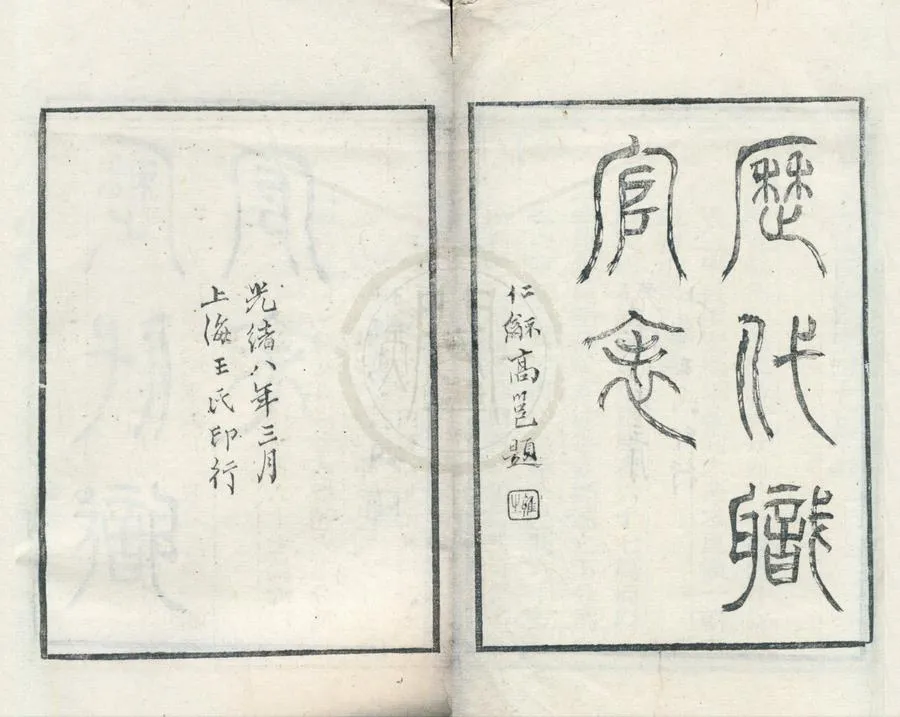 歷代職
官表
仁龢高邕題
光緒八年三月
上海王氏印行